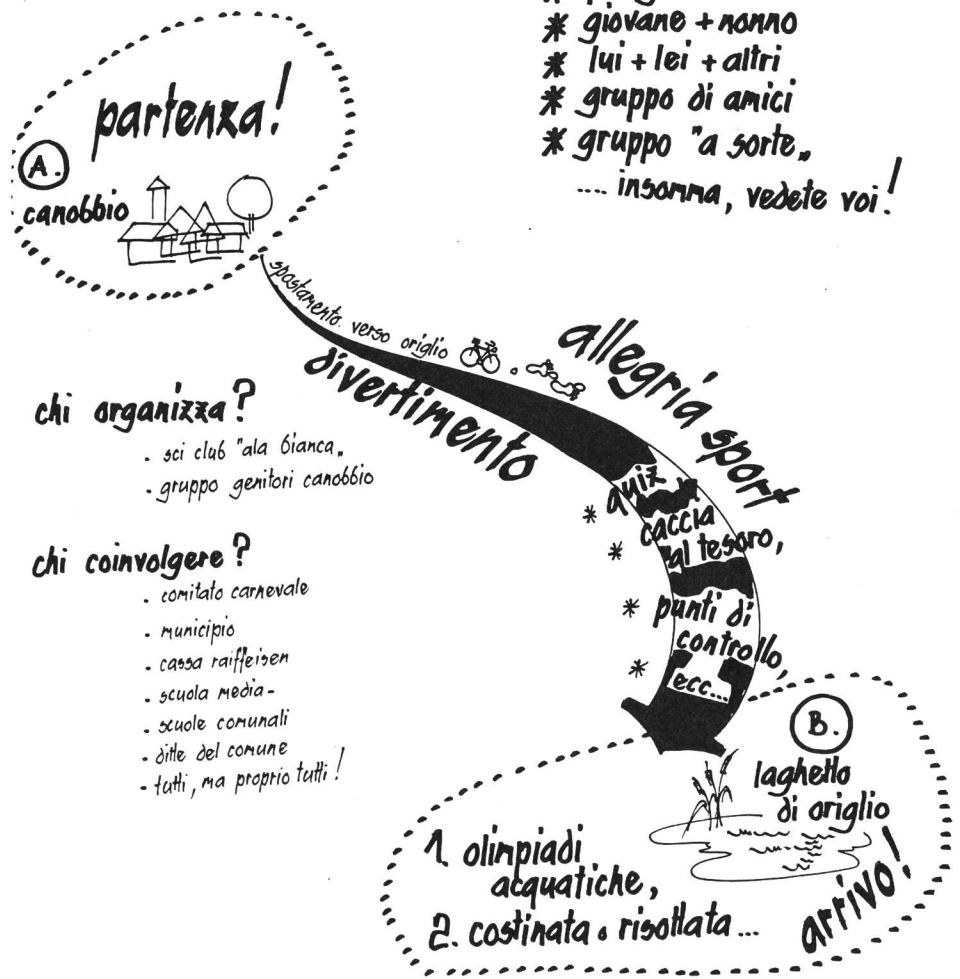 * giovane + nonno
* lui + lei + altri
* gruppo di amici
* gruppo "a sorte„
.... insomma, vedete voi!
partenza!
A.
canobbio
spostamento verso origlio
divertimento
allegria sport
chi organizza?
. sci club "ala bianca„
. gruppo genitori canobbio
chi coinvolgere?
. comitato carnevale
. municipio
. cassa raiffeisen
. scuola media -
. scuole comunali
. ditte del comune
. tutti, ma proprio tutti!
* quiz
* caccia
al tesoro,
* punti di
controllo,
* ecc...
B.
laghetto
di origlio
1. olimpiadi
acquatiche,
2. costinata o risottata...
arrivo!